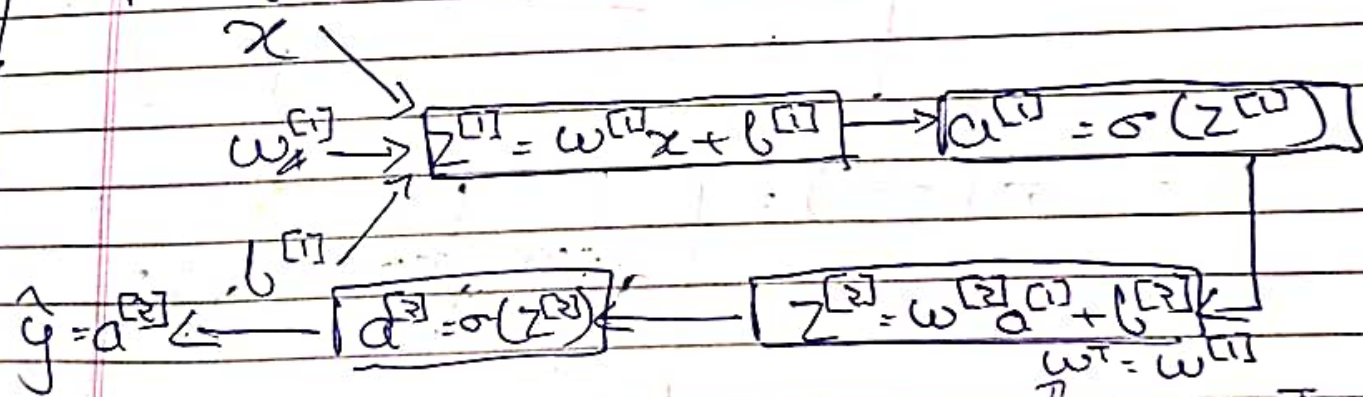 x
w^[1] → z^[1] = w^[1]x + b^[1] → a^[1] = σ(z^[1])
b^[1]
ŷ = a^[2] ← a^[2] = σ(z^[2]) ← z^[2] = w^[2]a^[1] + b^[2]
w^T = w^[1]